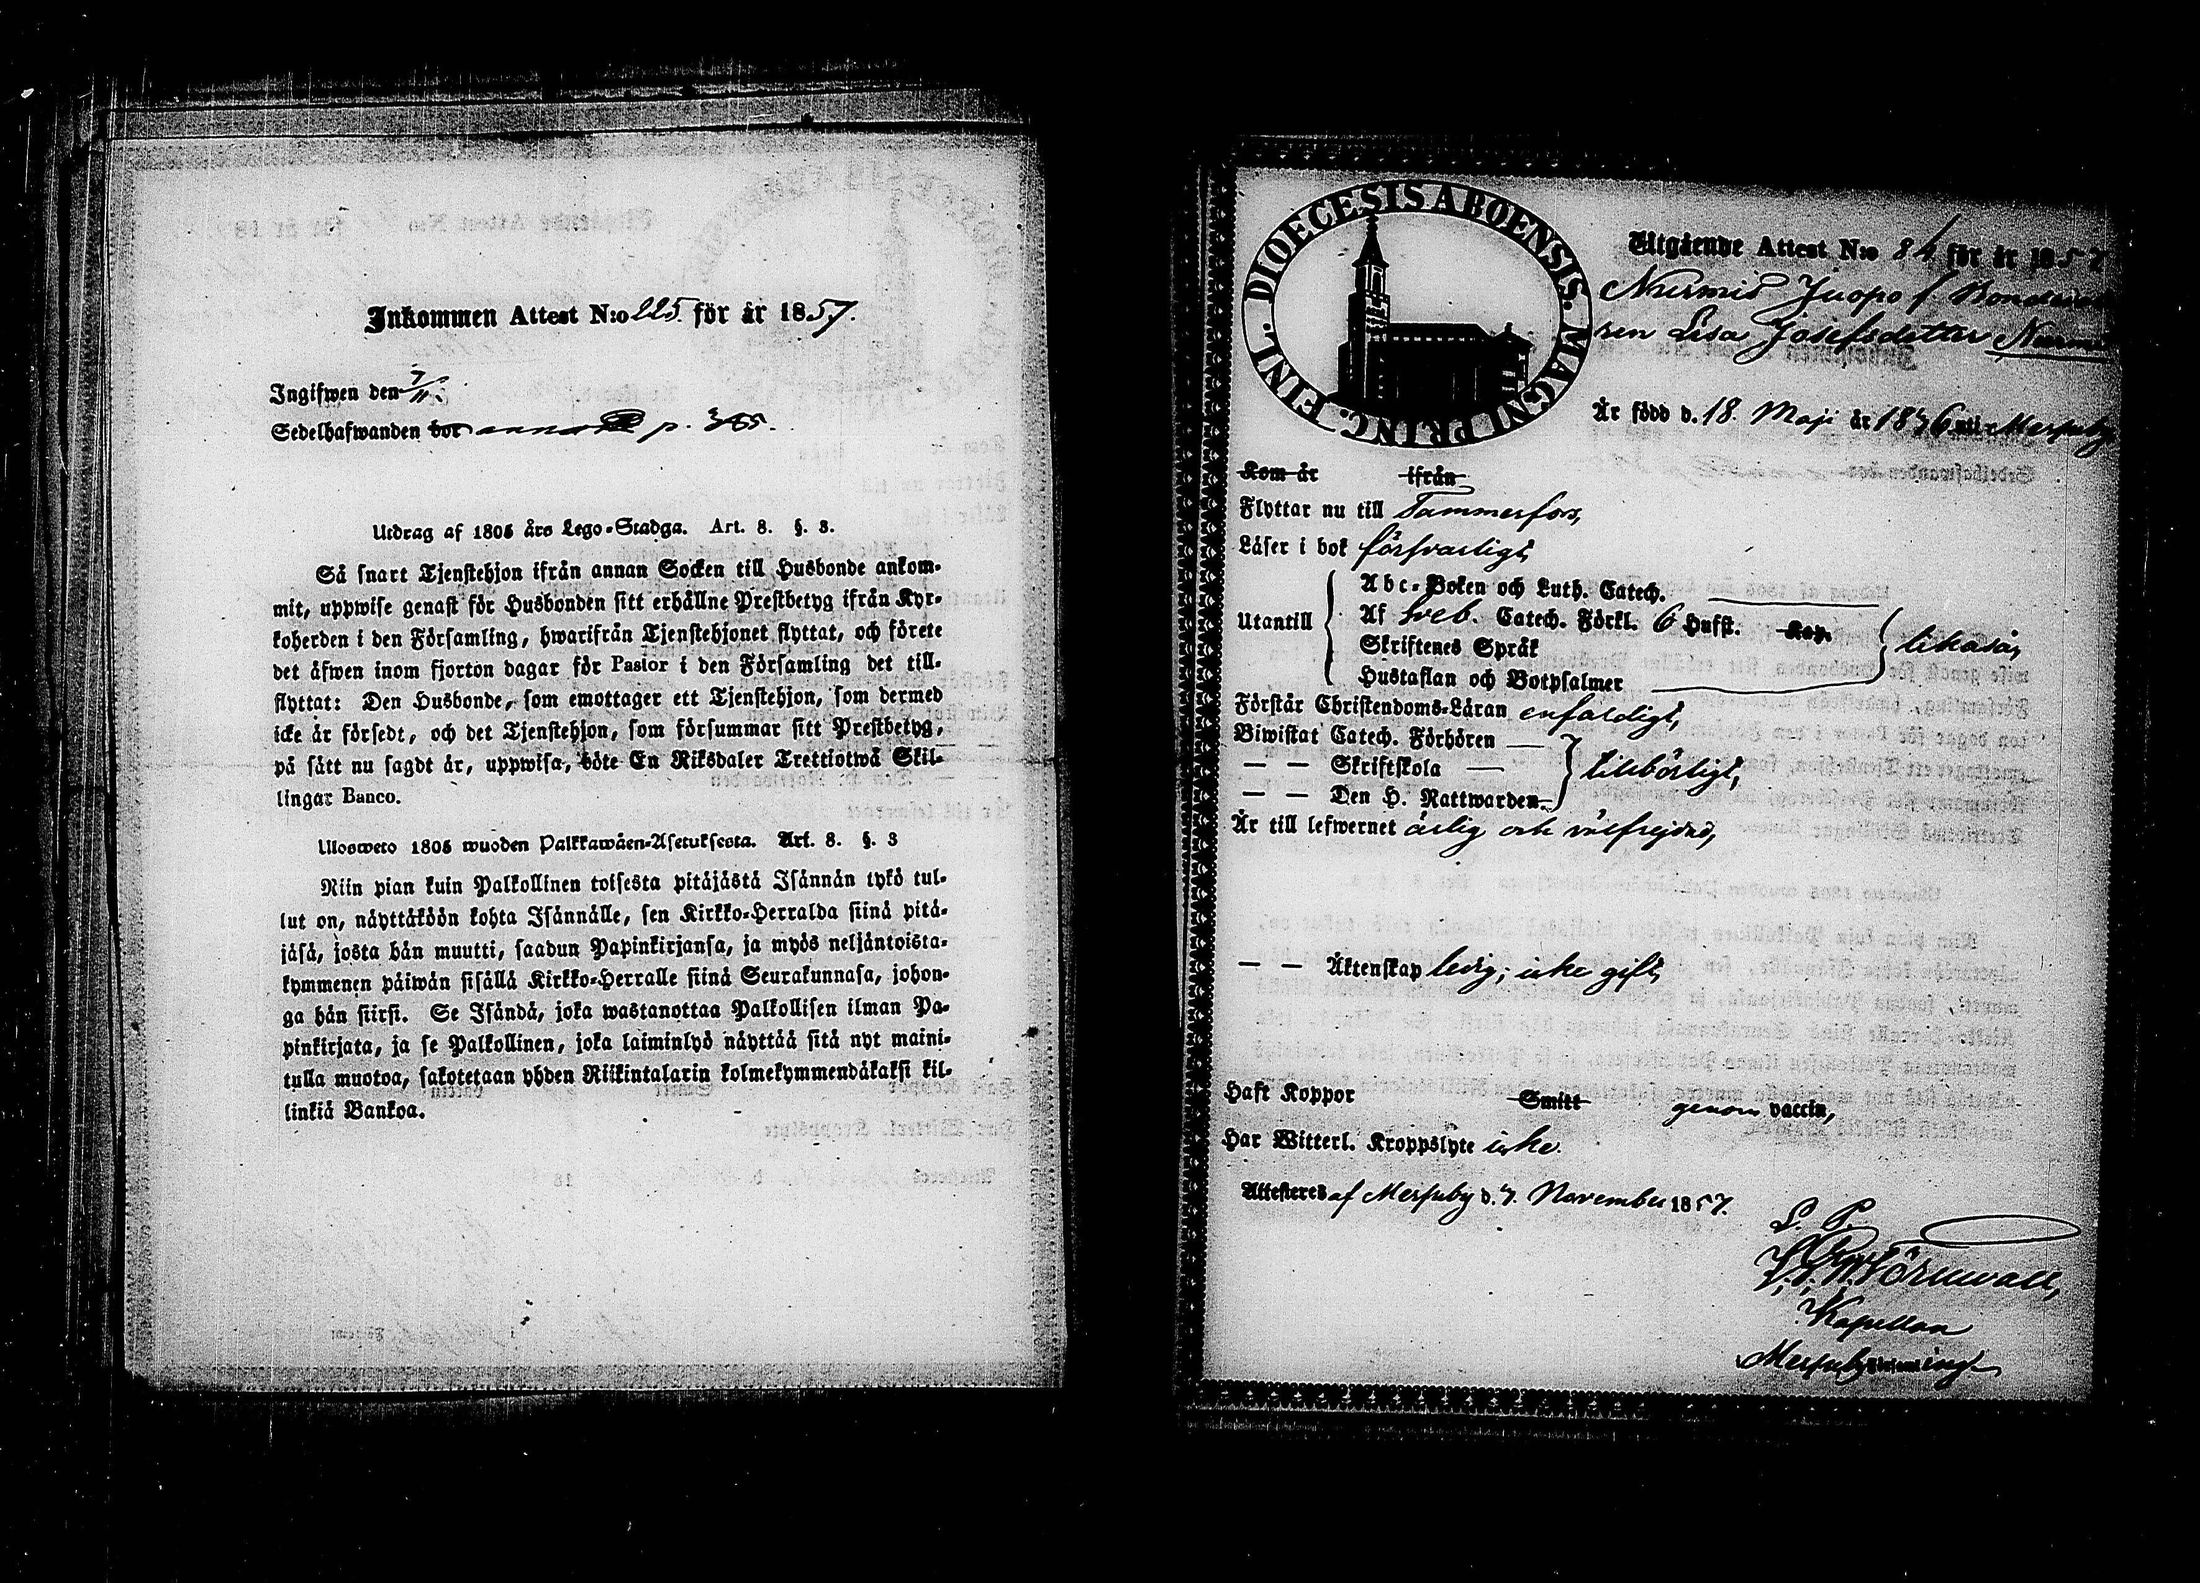 Inkommen Attest N:o 225. för år 1857.
Ingifwen den 7/11.
Sedelhafwanden bor p. 385.
Utdrag af 1805 års Lego-Stadga. Art. 8. §. 3.
Så snart Tjenstehjon ifrån annan Socken till Husbonde ankom-
mit, uppwise genast för Husbonden sitt erhållne Prestbetyg ifrån Kyr-
koherden i den Församling, hwarifrån Tjenstehjonet flyttat, och förete
det äfwen inom fjorton dagar för Pastor i den Församling det till-
flyttat: Den Husbonde, som emottager ett Tjenstehjon, som dermed
icke är försedt, och det Tjenstehjon, som försummar sitt Prestbetyg,
på sätt nu sagdt är, uppwisa, böte En Riksdaler Trettiotwå Skil-
lingar Banco.
Ulosweto 1805 wuoden Palkkawäen-Asetuksesta. Art. 8. §. 3
Niin pian kuin Palkollinen toisesta pitäjästä Isännän tykö tul-
lut on, näyttäköön kohta Isännälle, sen Kirkko-Herralda siinä pitä-
jäsä, josta hän muutti, saadun Papinkirjansa, ja myös neljäntoista-
kymmenen päiwän sisällä Kirkko-Herralle siinä Seurakunnasa, johon-
ga hän siirsi. Se Isändä, joka wastanottaa Palkollisen ilman Pa-
pinkirjata, ja se Palkollinen, joka laiminlyö näyttää sitä nyt maini-
tulla muotoa, sakotetaan yhden Riikintalarin kolmekymmendäkaksi kil-
linkiä Bankoa.
DIOECESIS ABOENSIS. MAGNI PRINC. FINL.
Utgående Attest N:o 84 för år 1857
Nurmis Juopo f.
ren Lisa Josefsdotter
Är född d. 18. Maji år 1836 uti Messuby
Kom år ifrån
Flyttar nu till Tammerfors,
Läser i bok försvarligt,
Utantill
Abc-Boken och Luth. Catech.
Af Sveb. Catech. Förkl. 6 Hufst. Kap.
Skriftenes Språk
Hustaflan och Botpsalmer
likaså,
Förstår Christendoms-Läran enfaldigt,
Biwistat Catech. Förhören —
— — Skriftskola —
— — Den H. Nattwarden —
tillbörligt,
Är till lefwernet ärlig och välfrejdad,
— — Äktenskap ledig; icke gift,
Haft Koppor Smitt genom vaccin,
Har Witterl. Kroppslyte icke.
Attesteres af Messuby d. 7. November 1857.
L. P.
Kapellan
Messuby